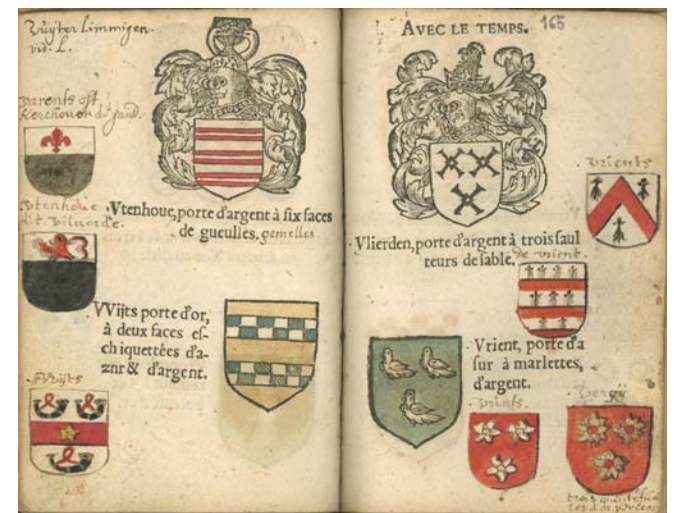 Zuÿter Limmigen.
vid. L.
parents oft
Kerchouen de Gand.
Vtenhoue, porte d'argent à six faces
de gueulles. gemelles.
Vtenhoue
dit Viluorde.
VVijts porte d'or,
à deux faces es-
chiquettées d'a-
znr & d'argent.
Wijts
AVEC LE TEMPS. 165
Vrients
Vlierden, porte d'argent à trois saul
teurs de sable.
de Vrient.
Vrient, porte d'a
sur à marlettes,
d'argent.
Vrints.
Vergÿ